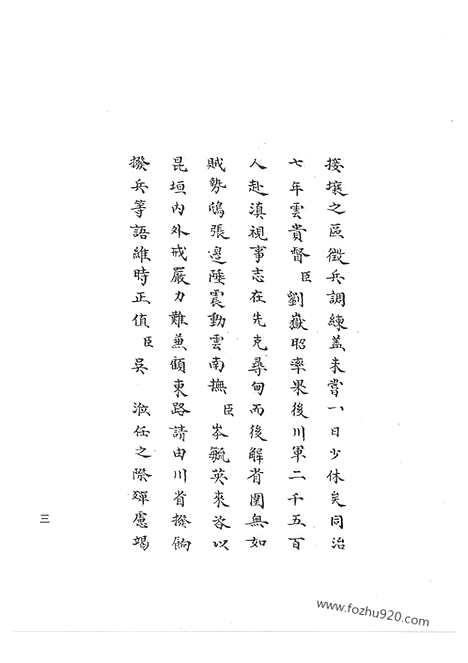 接壤之區徵兵調練蓋未嘗一日少休矣同治
七年雲貴督臣劉嶽昭率果後川軍二千五百
人赴滇視事志在先克尋甸而後解省圍無如
賊勢鴟張邊陲震動雲南撫臣岑毓英來咨以
昆垣内外戒嚴力難兼顧東路請由川省撥餉
撥兵等語維時正值臣吳 涖任之際殫慮竭
三
www.fozhu920.com